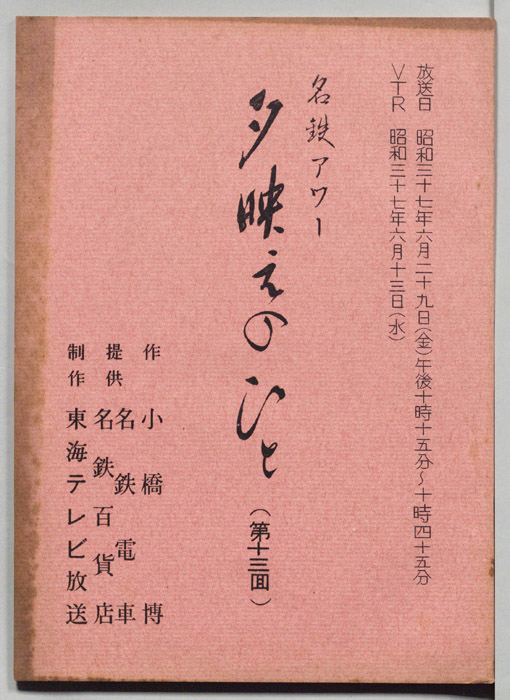 放送日 昭和三十七年六月二十九日(金)午後十時十五分~十時四十五分
VTR 昭和三十七年六月十三日(水)
名鉄アワー
夕映えのひと
(第十三回)
作 小橋博
提供 名鉄電車
名鉄百貨店
制作 東海テレビ放送